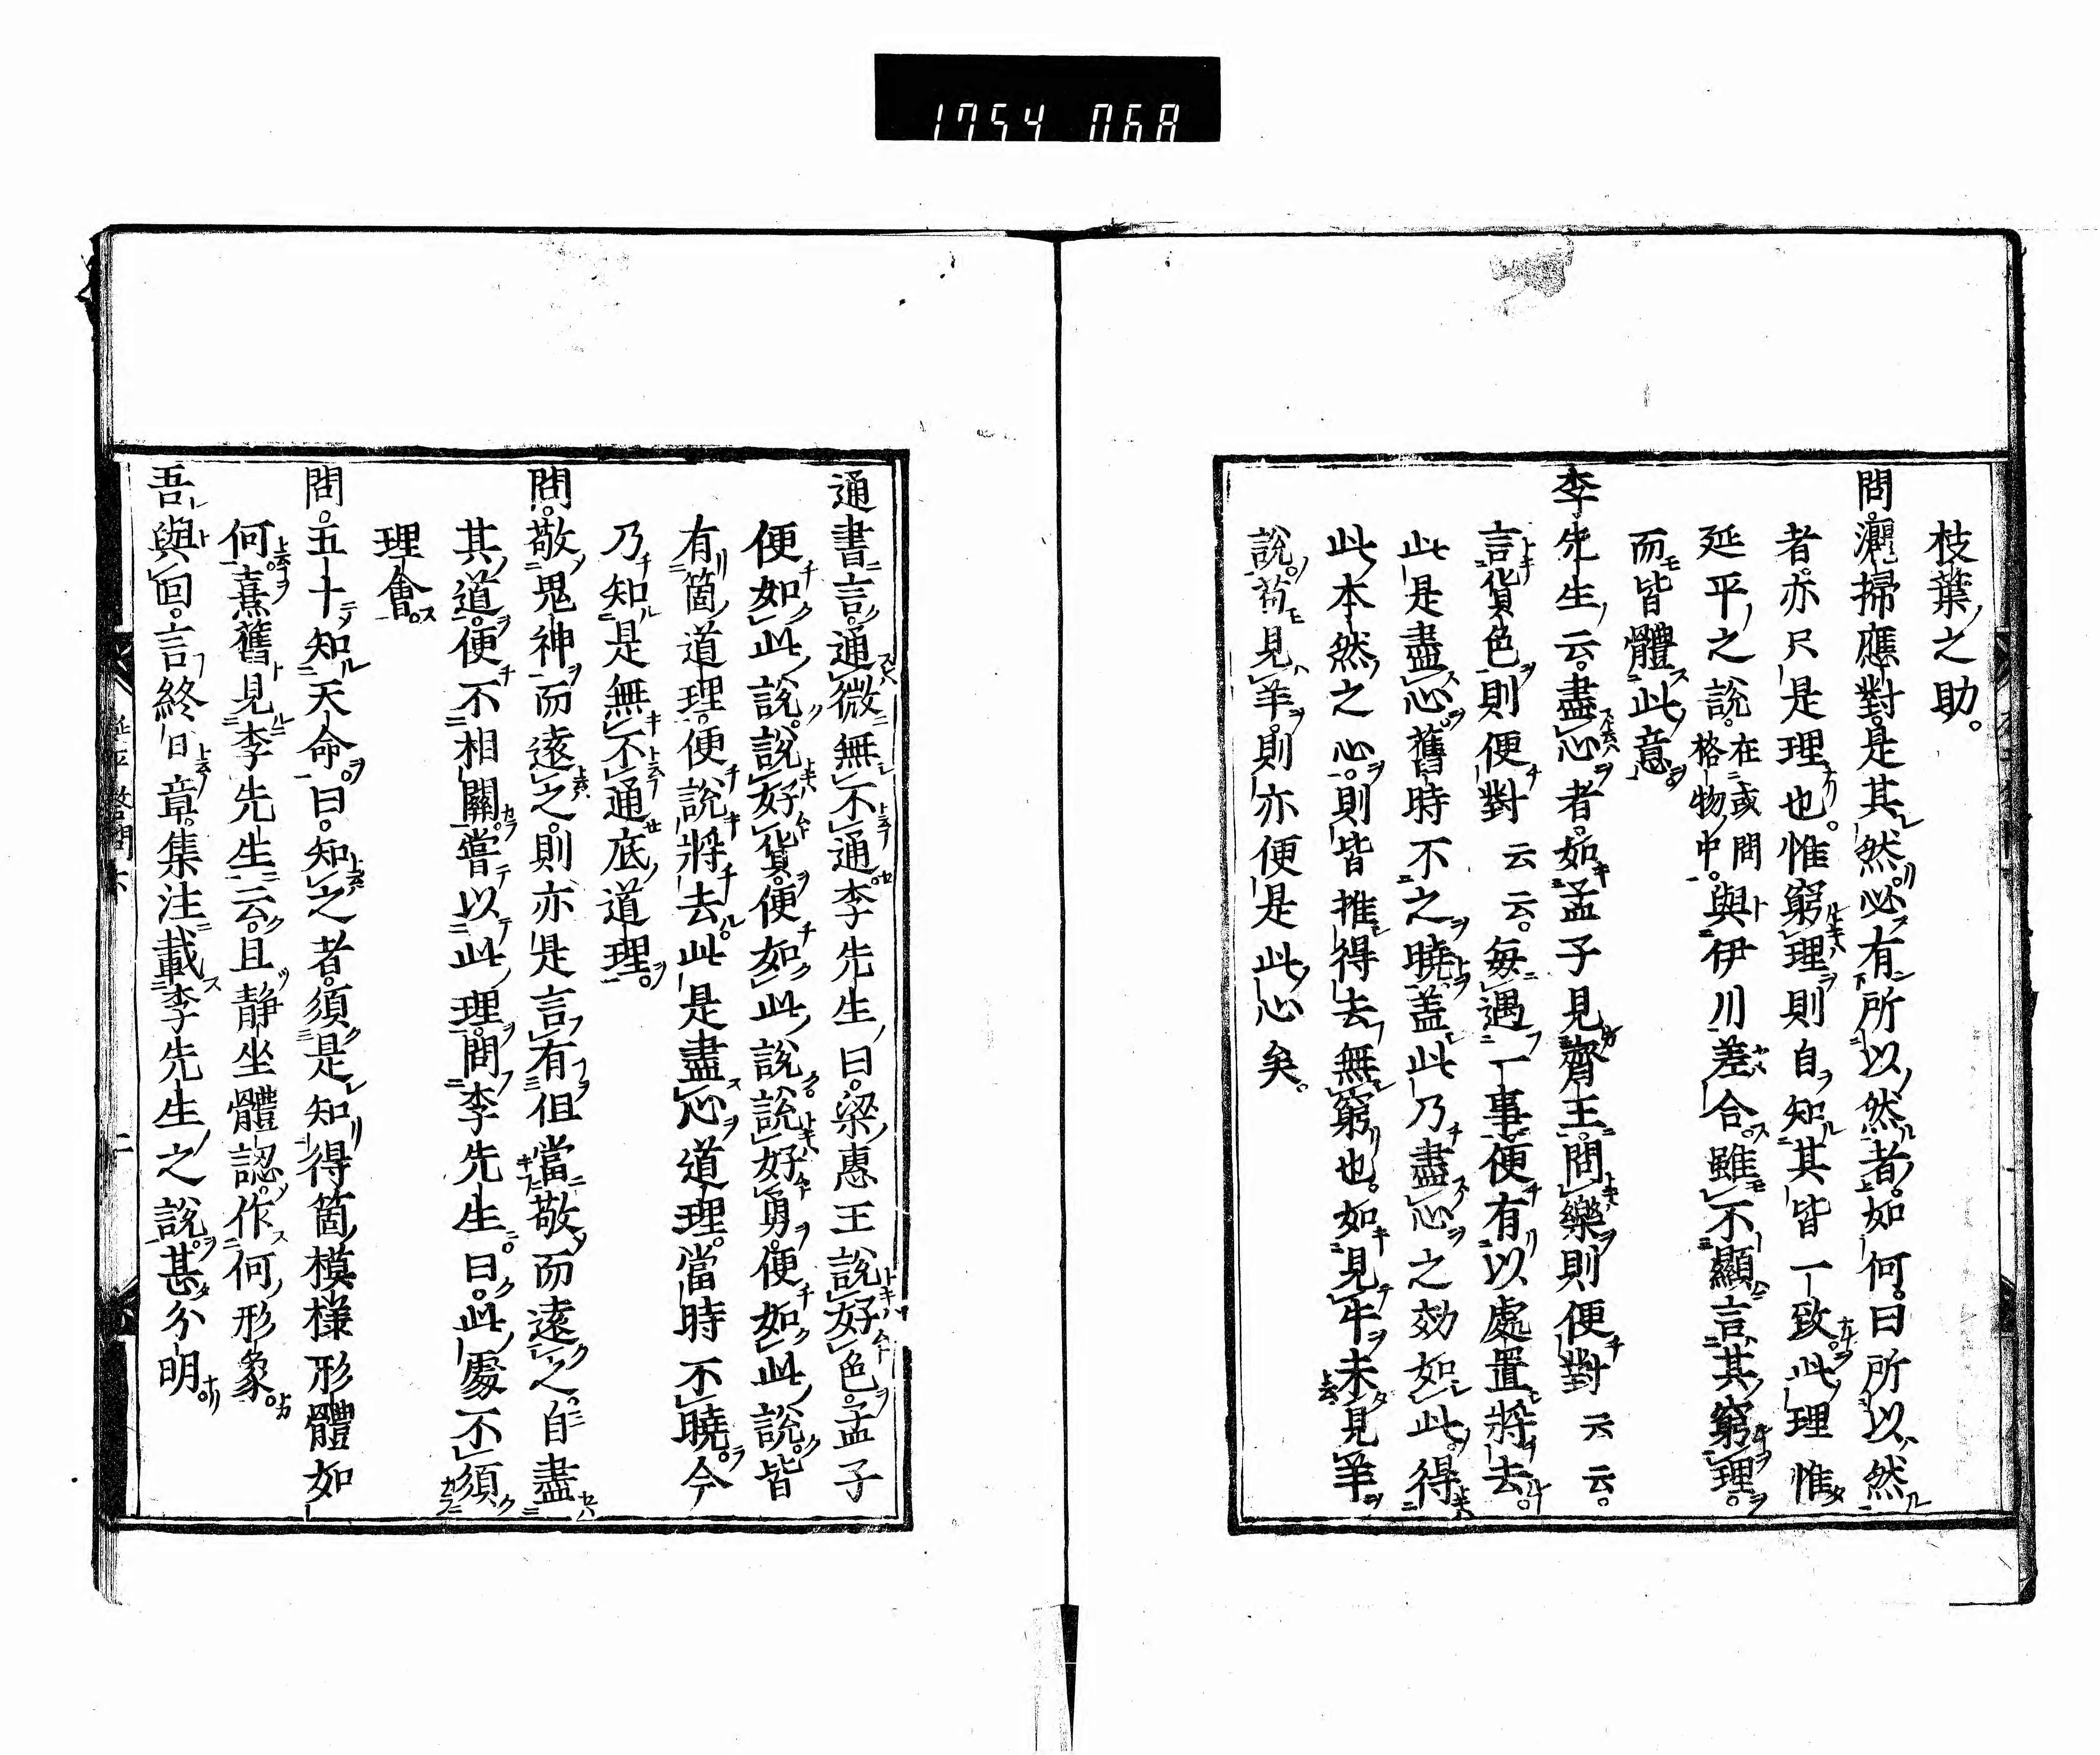 1754 068
枝葉之助。
問。灑掃應對。是其然。必有所以然者。如何。曰所以然
者。亦只是理也。惟窮理則自知其皆一致。此理惟
延平之說。在或問格物中。與伊川差合。雖不顯言其窮理。
而皆體此意。
李先生云。盡心者。如孟子見齊王。問樂則便對云云。
言貨色則便對云云。每遇一事。便有以處置將去。
此是盡心。舊時不之曉。蓋此乃盡心之効如此。得
此本然之心。則皆推得去無窮也。如見牛未見羊
說。苟見羊。則亦便是此心矣。
通書言。通微無不通。李先生曰。梁惠王說好色。孟子
便如此說。說好貨。便如此說。說好勇。便如此說。皆
有箇道理。便說將去。此是盡心道理。當時不曉。今
乃知是無不通底道理。
問。敬鬼神而遠之。則亦是言有但當敬而遠之。自盡
其道。便不相關。嘗以此理問李先生。曰。此處不須
理會。
問。五十知天命。曰。知之者。須是知得箇模樣形體如
何。熹舊見李先生云。且靜坐體認。作何形象。
吾與回。言終日章。集注載李先生之說。甚分明。
延平答問下 二